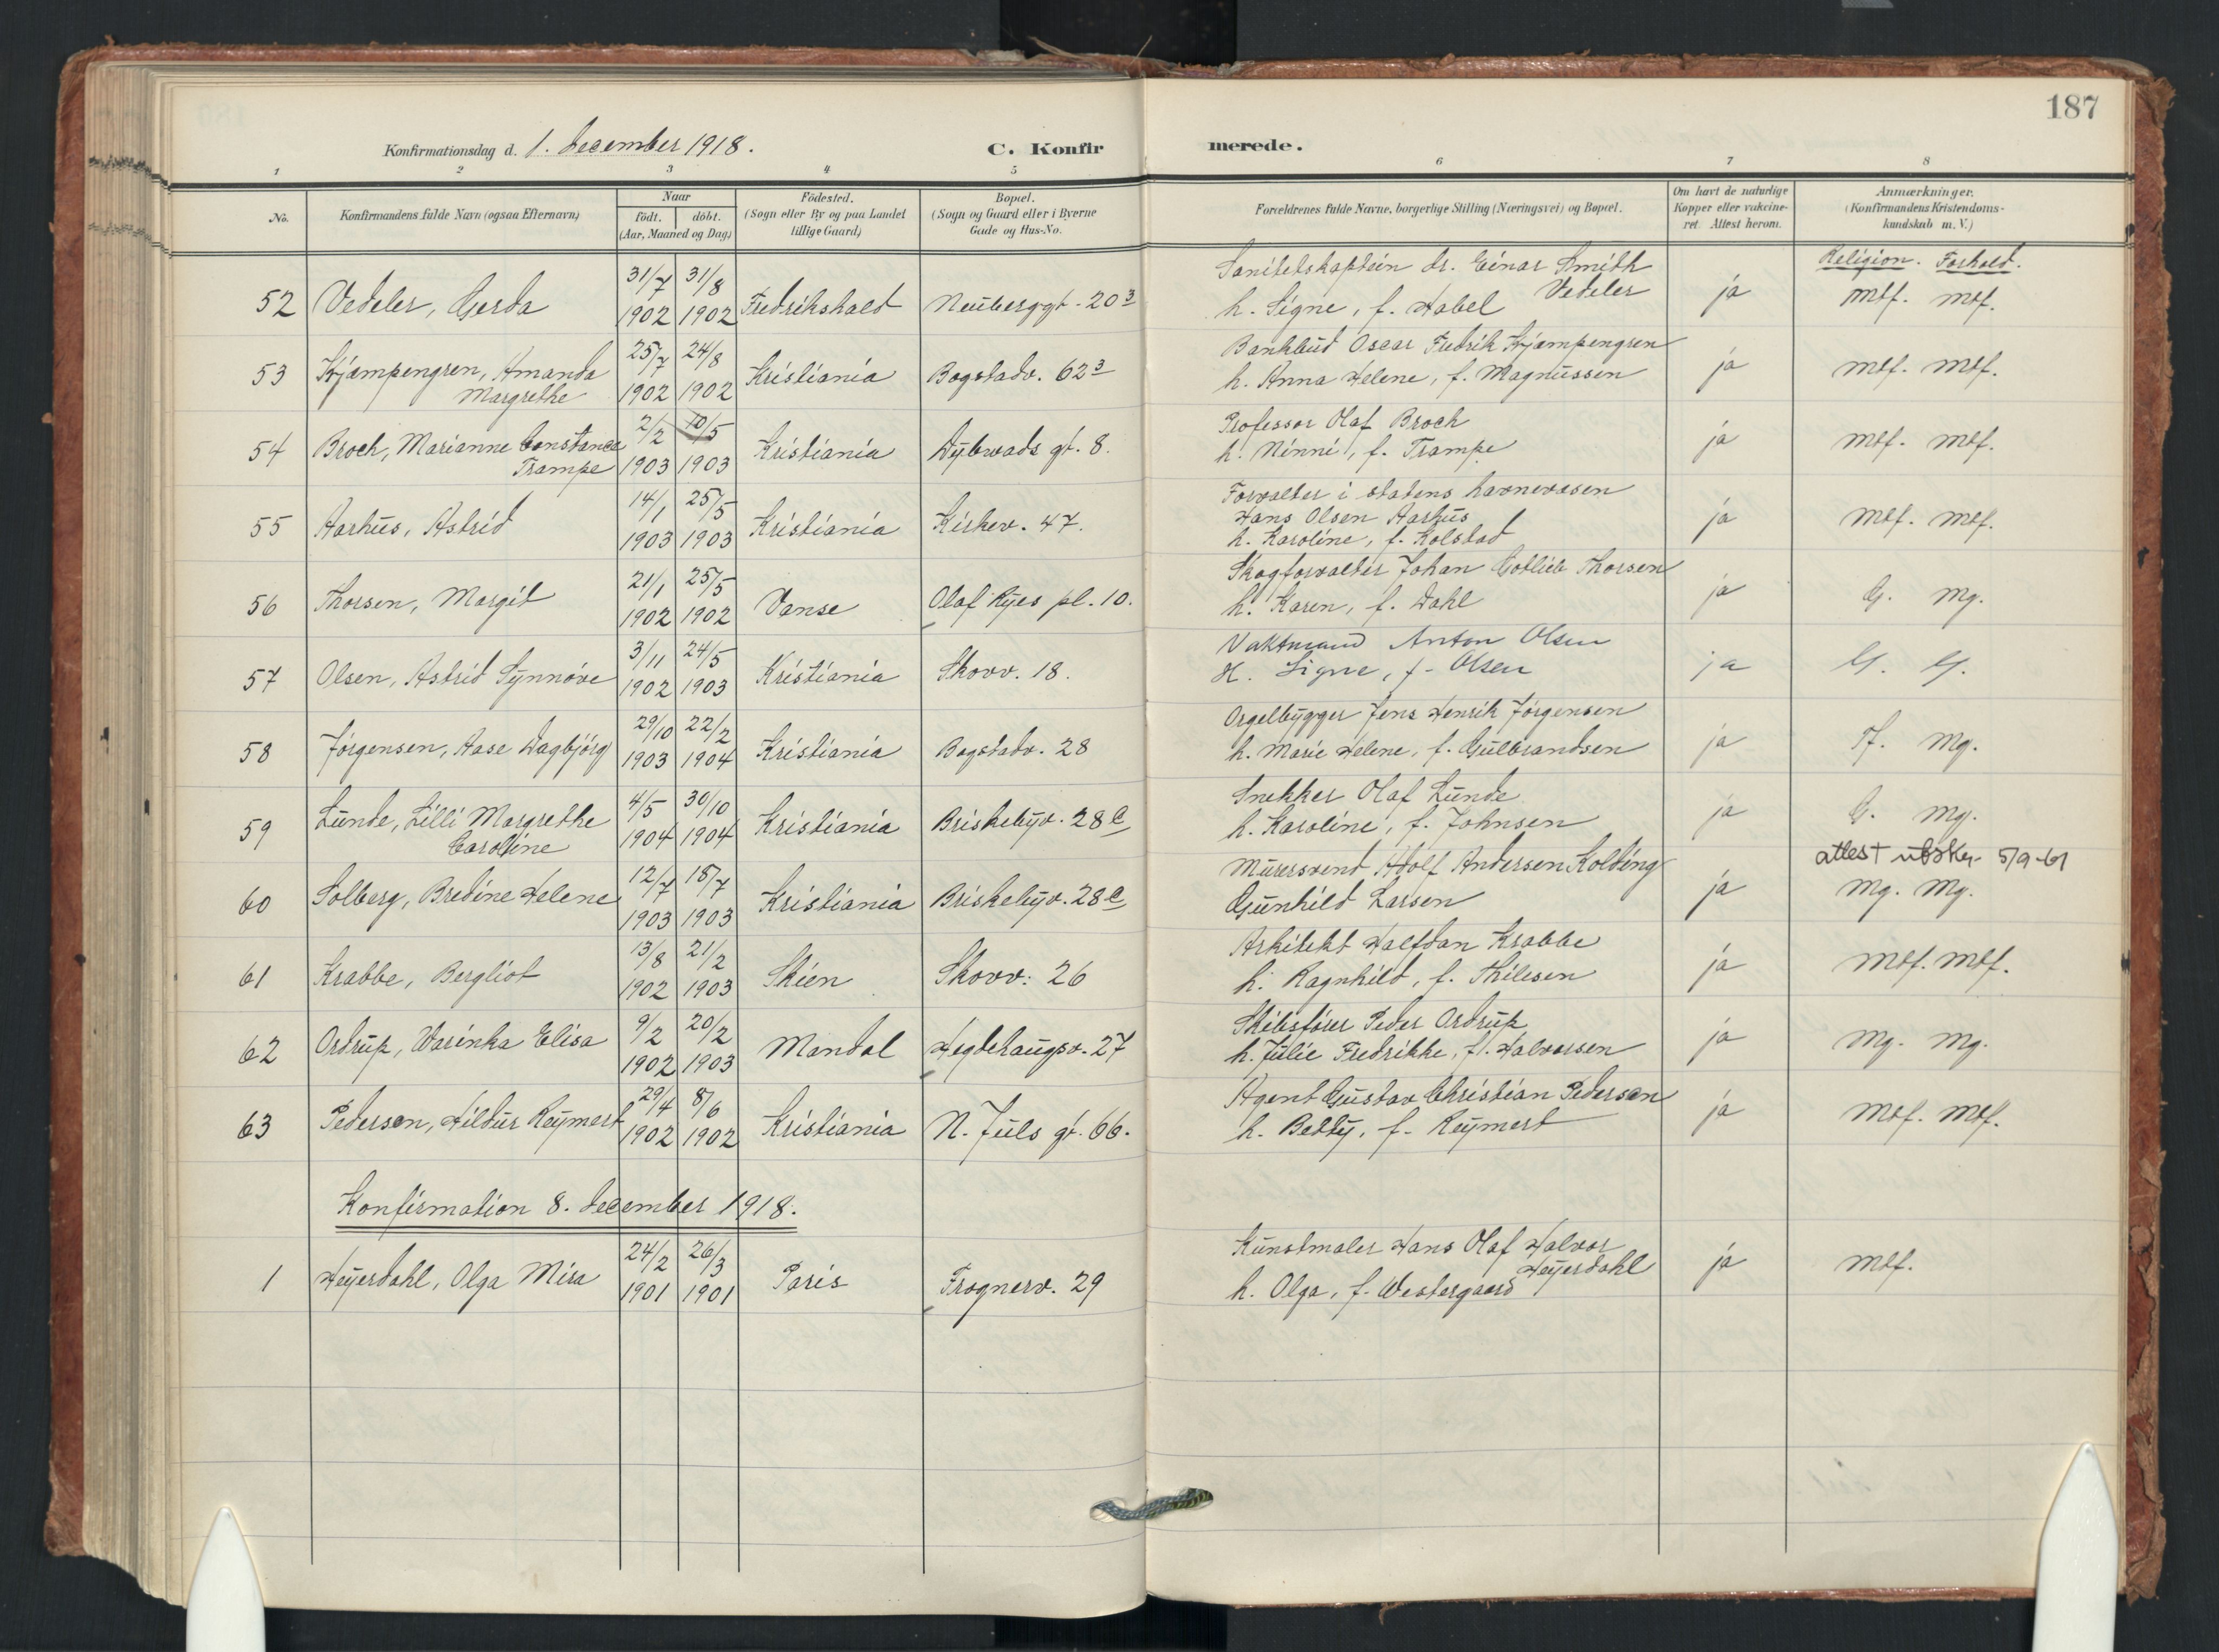 187
Konfirmationsdag d. 1. december 1918. C. Konfirmerede.
1 2 3 4 5 6 7 8
No.
Konfirmandens fulde Navn (ogsaa Efternavn)
Naar
födt. döbt.
(Aar, Maaned og Dag)
Födested.
(Sogn eller By og paa Landet
tillige Gaard)
Bopæl.
(Sogn og Gaard eller i Byerne
Gade og Hus-No.
Forældrenes fulde Navne, borgerlige Stilling (Næringsvei) og Bopæl.
Om havt de naturlige
Kopper eller vakcine-
ret. Attest herom.
Anmærkninger.
(Konfirmandens Kristendoms-
kundskab m. V.)
Religion. Forhold.
52 Vedeler, Gerda 31/7 1902 31/8 1902 Fredrikshald Neuberggt. 20 3
Sanitetskaptein dr. Einar Smith
Vedeler
h. Signe, f. Habel ja Mtf. mtf.
53 Kjæmpengren, Amanda
Margrethe 25/7 1902 24/8 1902 Kristiania Bogstadv. 62 3
Bankbud Oscar Fredrik Kjæmpengren
h. Anna Helene, f. Magnussen ja mtf. mtf.
54 Broch, Marianne Constance
Trampe 2/2 1903 10/5 1903 Kristiania Dybwads gt. 8.
Professor Olaf Broch
h. Ninni, f. Trampe ja mtf. mtf.
55 Aarhus, Astrid 14/1 1903 25/5 1903 Kristiania Kirkev. 47.
Forvalter i statens havnevæsen
Hans Olsen Aarhus
h. Karoline, f. Kolstad ja mtf. mtf.
56 Thorsen, Margit 21/1 1902 25/5 1902 Vanse Olaf Ryes pl. 10.
Skogforvalter Johan Gotlieb Thorsen
h. Karen, f. Dahl ja G. mg.
57 Olsen, Astrid Synnöve 3/11 1902 24/5 1903 Kristiania Skovv. 18.
Vaktmand Anton Olsen
H. Signe, f. Olsen ja G. G.
58 Jörgensen, Aase Dagbjörg 29/10 1903 22/2 1904 Kristiania Bogstadv. 28
Orgelbygger Jens Henrik Jörgensen
h. Marie Helene, f. Gulbrandsen ja Tf. mg.
59 Lunde, Lilli Margrethe
Caroline 4/5 1904 30/10 1904 Kristiania Briskebyv. 28 C
Snekker Olaf Lunde
h. Karoline, f. Johnsen ja G. mg.
attest utskr. 5/9-61
60 Solberg, Bredine Helene 12/7 1903 18/7 1903 Kristiania Briskebyv. 28 C
Murersvend Adolf Andersen Kolding
Gunhild Larsen ja mg. mg.
61 Krabbe, Bergliot 13/8 1902 21/2 1903 Skien Skovv. 26
Arkitekt Halfdan Krabbe
h. Ragnhild, f. Thilesen ja mtf. mtf.
62 Ordrup, Warinka Elisa 9/2 1902 20/2 1903 Mandal Hegdehaugsv. 27
Skibsförer Peder Ordrup
h. Julie Fredrikke, f. Halvorsen ja mg. mg.
63 Pedersen, Hildur Reymert 29/4 1902 8/6 1902 Kristiania N. Juls gt. 66.
Agent Gustav Christian Pedersen
h. Betty, f. Reymert ja mtf. mtf.
Konfirmation 8. december 1918.
1 Heyerdahl, Olga Mira 24/2 1901 26/3 1901 Paris Frognerv. 29
Kunstmaler Hans Olaf Halvor
Heyerdahl
h. Olga, f. Westergaard ja mtf.